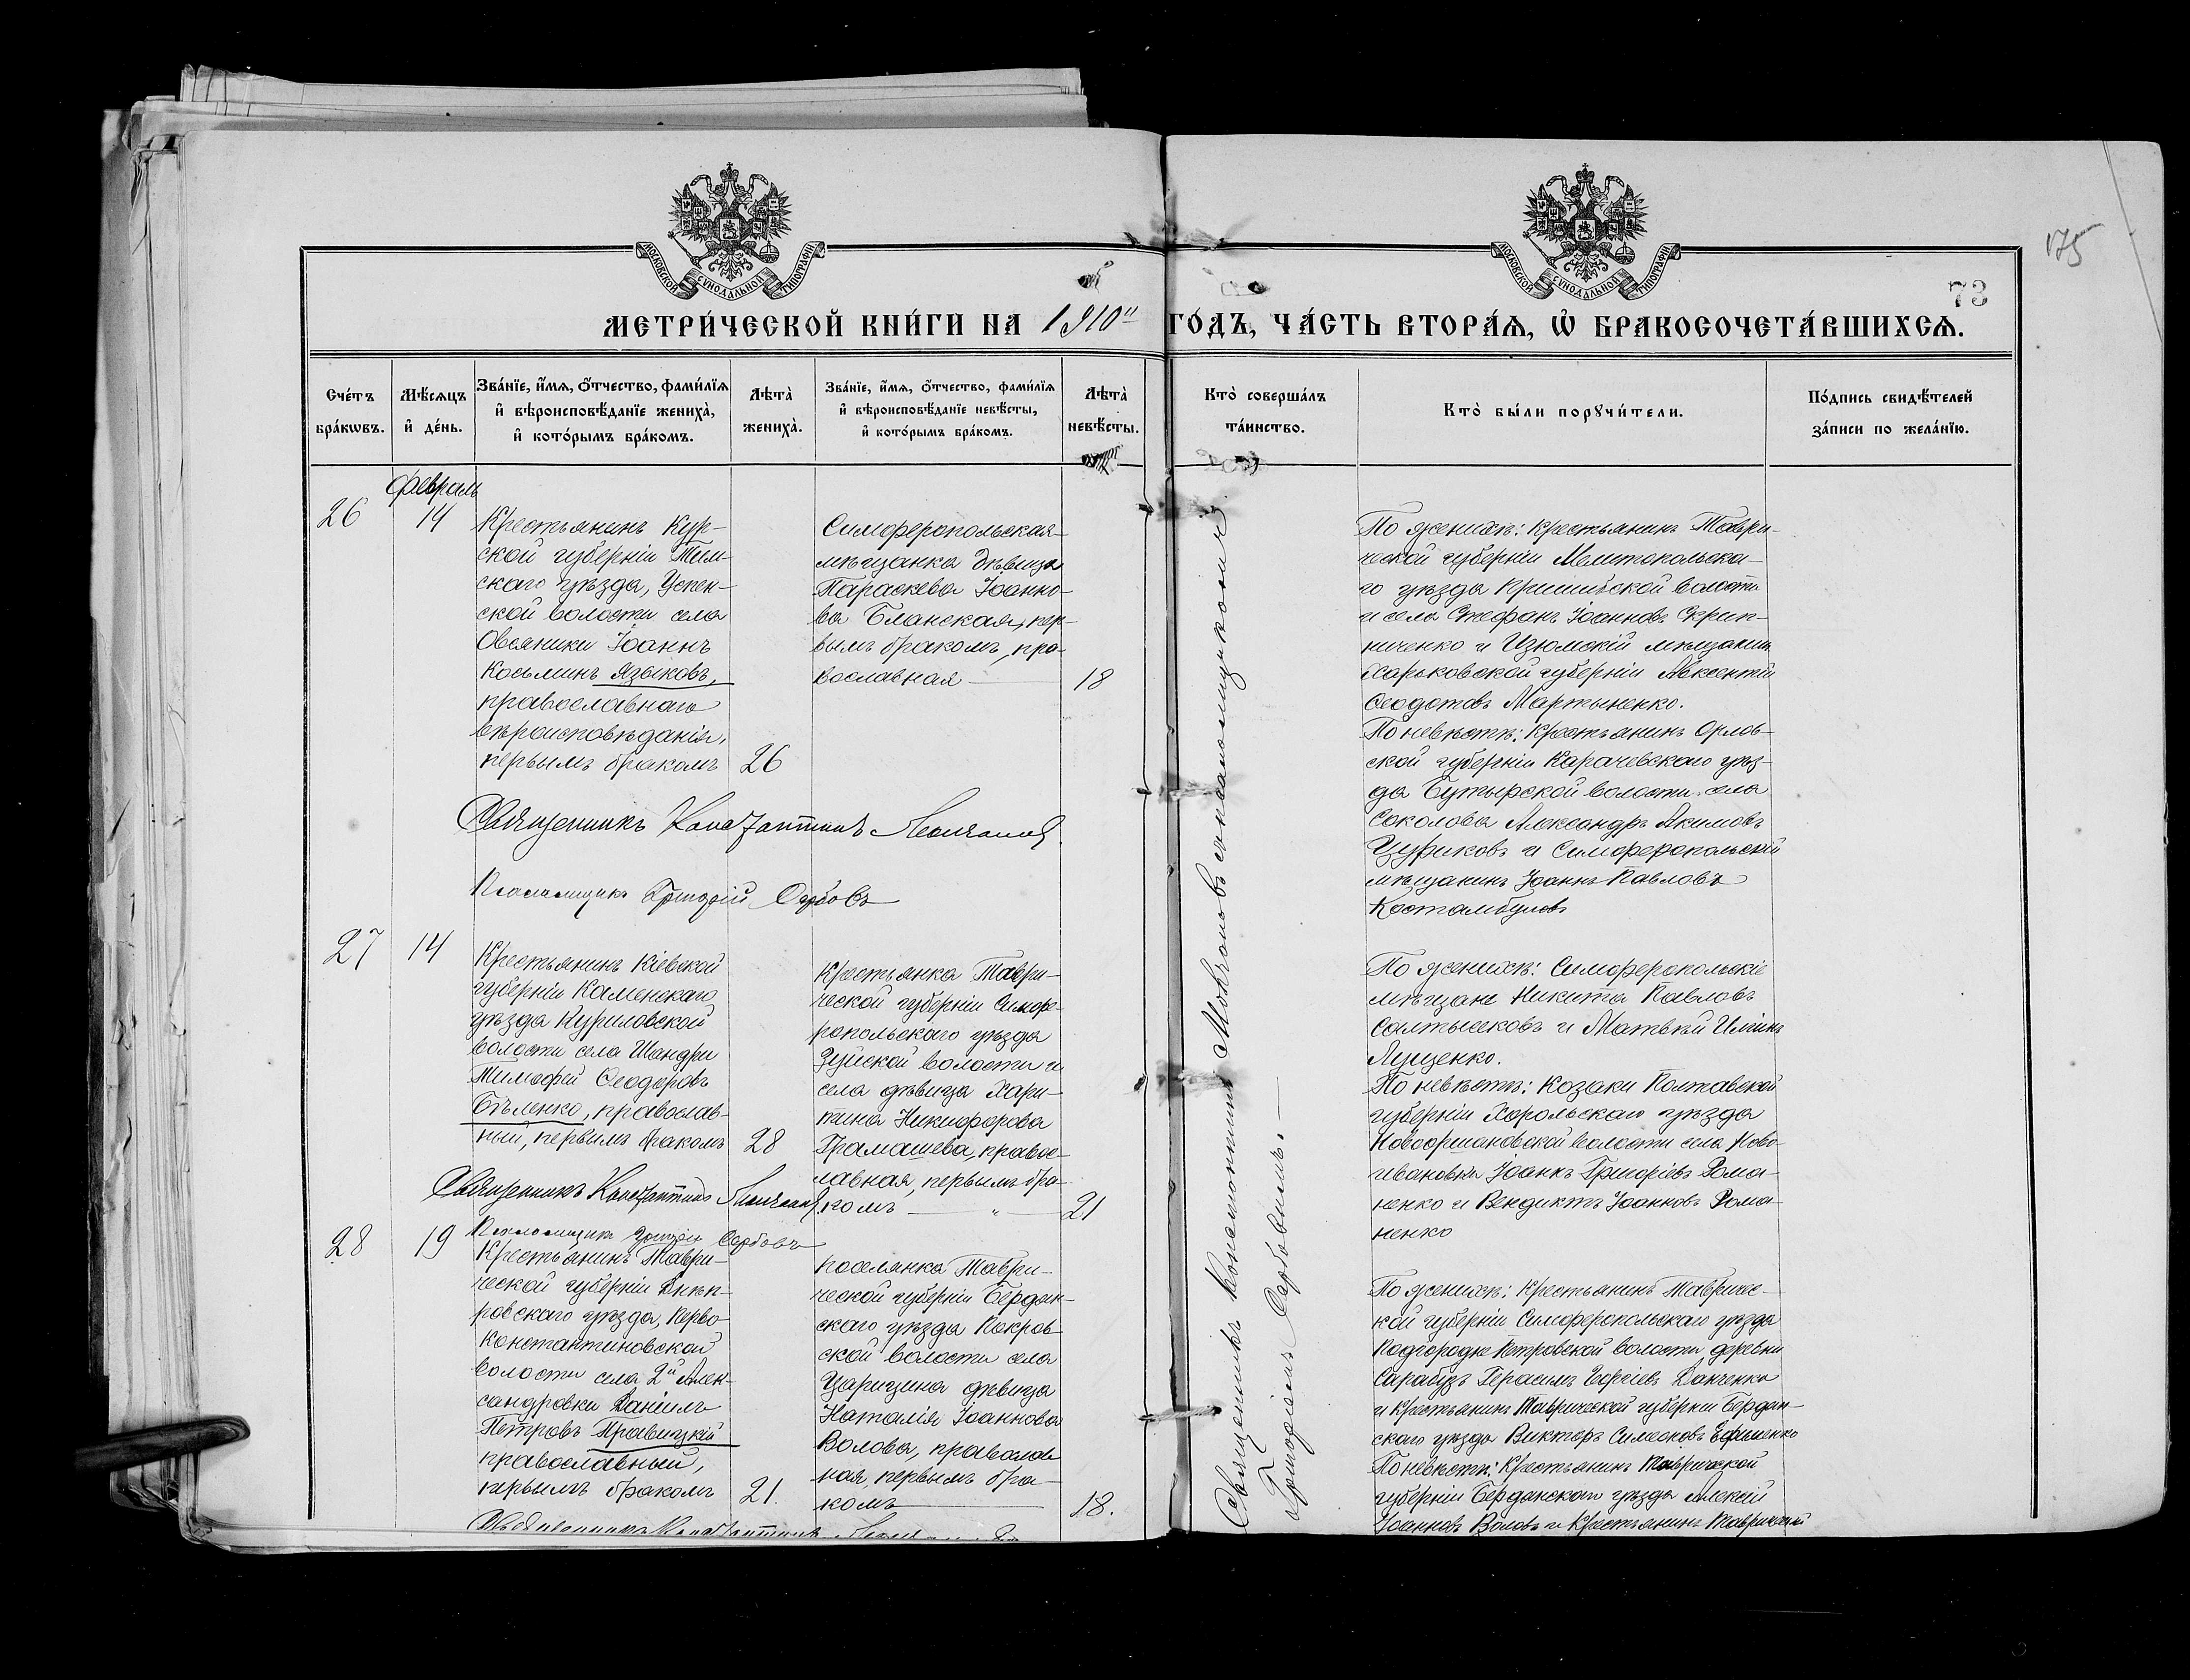 175
73
МОСКОВСКОЙ СѴНОДАЛЬНОЙ ТИПОГРАФІИ
МОСКОВСКОЙ СѴНОДАЛЬНОЙ ТИПОГРАФІИ
МЕТРИ́ЧЕСКОЙ КНИ́ГИ НА 1910й ГО́ДЪ, ЧА́СТЬ ВТОРА́Ѧ, Ѽ БРАКОСОЧЕТА́ВШИХСѦ.
Сче́тъ бра́кѡвъ.
Мѣ́сяцъ и҆ де́нь.
Зва́нїе, и҆́мѧ, ѻ҆́тчество, фами́лїѧ и҆ вѣроисповѣ́данїе жениха̀, и҆ кото́рымъ бра́комъ.
Лѣта̀ жениха̀.
Зва́нїе, и҆́мѧ, ѻ҆́тчество, фами́лїѧ и҆ вѣроисповѣ́данїе невѣ́сты, и҆ кото́рымъ бра́комъ.
Лѣта̀ невѣ́сты.
Кто̀ соверша́лъ та́инство.
Кто̀ бы́ли порꙋчи́тели.
По́дпись свидѣ́телей за́писи по жела́нїю.
Февраль
26
14
Крестьянинъ Кур-
ской губерніи Тим-
скаго уѣзда, Успен-
ской волости села
Овсяники Іоаннъ
Косьминъ Языковъ,
православнаго
вѣроисповѣданія,
первымъ бракомъ
26
Симферопольская
мѣщанка дѣвица
Параскева Іоанно-
ва Бланская, пер-
вымъ бракомъ, пра-
вославная
18
По женихѣ: крестьянинъ Таври-
ческой губерніи Мелитопольска-
го уѣзда Кришибской волости
и села Стефанъ Іоанновъ Скрип-
ниченко и Изюмскій мѣщанинъ
Харьковской губерніи Авксентій
Ѳеодотовъ Мартыненко.
По невѣстѣ: Крестьянинъ Орлов-
ской губерніи Карачевскаго уѣз-
да Бутырской волости села
Соколова Александръ Акимовъ
Цуриковъ и Симферопольскій
мѣщанинъ Іоаннъ Павловъ
Костамбуловъ
Священникъ Константинъ
Псаломщикъ Григорій Сербовъ
27
14
Крестьянинъ Кіевской
губерніи Каменскаго
уѣзда Куриловской
волости села Шандри
Тимофей Ѳеодоровъ
Бѣленко, православ-
ный, первымъ бракомъ
28
Крестьянка Таври-
ческой губерніи Симфе-
ропольскаго уѣзда
Зуйской волости и
села дѣвица Хари-
тина Никифорова
Грамашева, правос-
лавная, первымъ бра-
комъ
21
По женихѣ: Симферопольскіе
мѣщане Никита Павловъ
Салтысековъ и Матвѣй Ильинъ
Луценко.
По невѣстѣ: Козаки Полтавской
губерніи Хорольскаго уѣзда
Новооржановской волости села Ново-
ивановки Іоаннъ Григоріевъ Рома-
ненко и Венедиктъ Іоанновъ Рома-
ненко
Священникъ Константинъ
Псаломщикъ Григорій Сербовъ
28
19
Крестьянинъ Таври-
ческой губерніи Днѣп-
ровскаго уѣзда, Перво-
константиновской
волости села 2й Алек-
сандровки Даніилъ
Петровъ Правицкій
православный,
первымъ бракомъ
21.
поселянка Таври-
ческой губерніи Бердян-
скаго уѣзда Покров-
ской волости села
Царицина дѣвица
Наталія Іоаннова
Волова, православ-
ная, первымъ бра-
комъ
18.
По женихѣ: Крестьянинъ Тавричес-
кой губерніи Симферопольскаго уѣзда
Подгородне Петровской волости деревни
Сарабузъ Герасимъ Георгіевъ Данченко
и крестьянинъ Таврической губерніи Бердян-
скаго уѣзда Викторъ Симеоновъ Ефименко
По невѣстѣ: Крестьянинъ Таврической
губерніи Бердянскаго уѣзда Алексій
Іоанновъ Воловъ и Крестьянинъ Таврической
Священникъ Константинъ
Священникъ Константинъ Мокчановъ съ псаломщикомъ
Григоріемъ Сербовымъ.